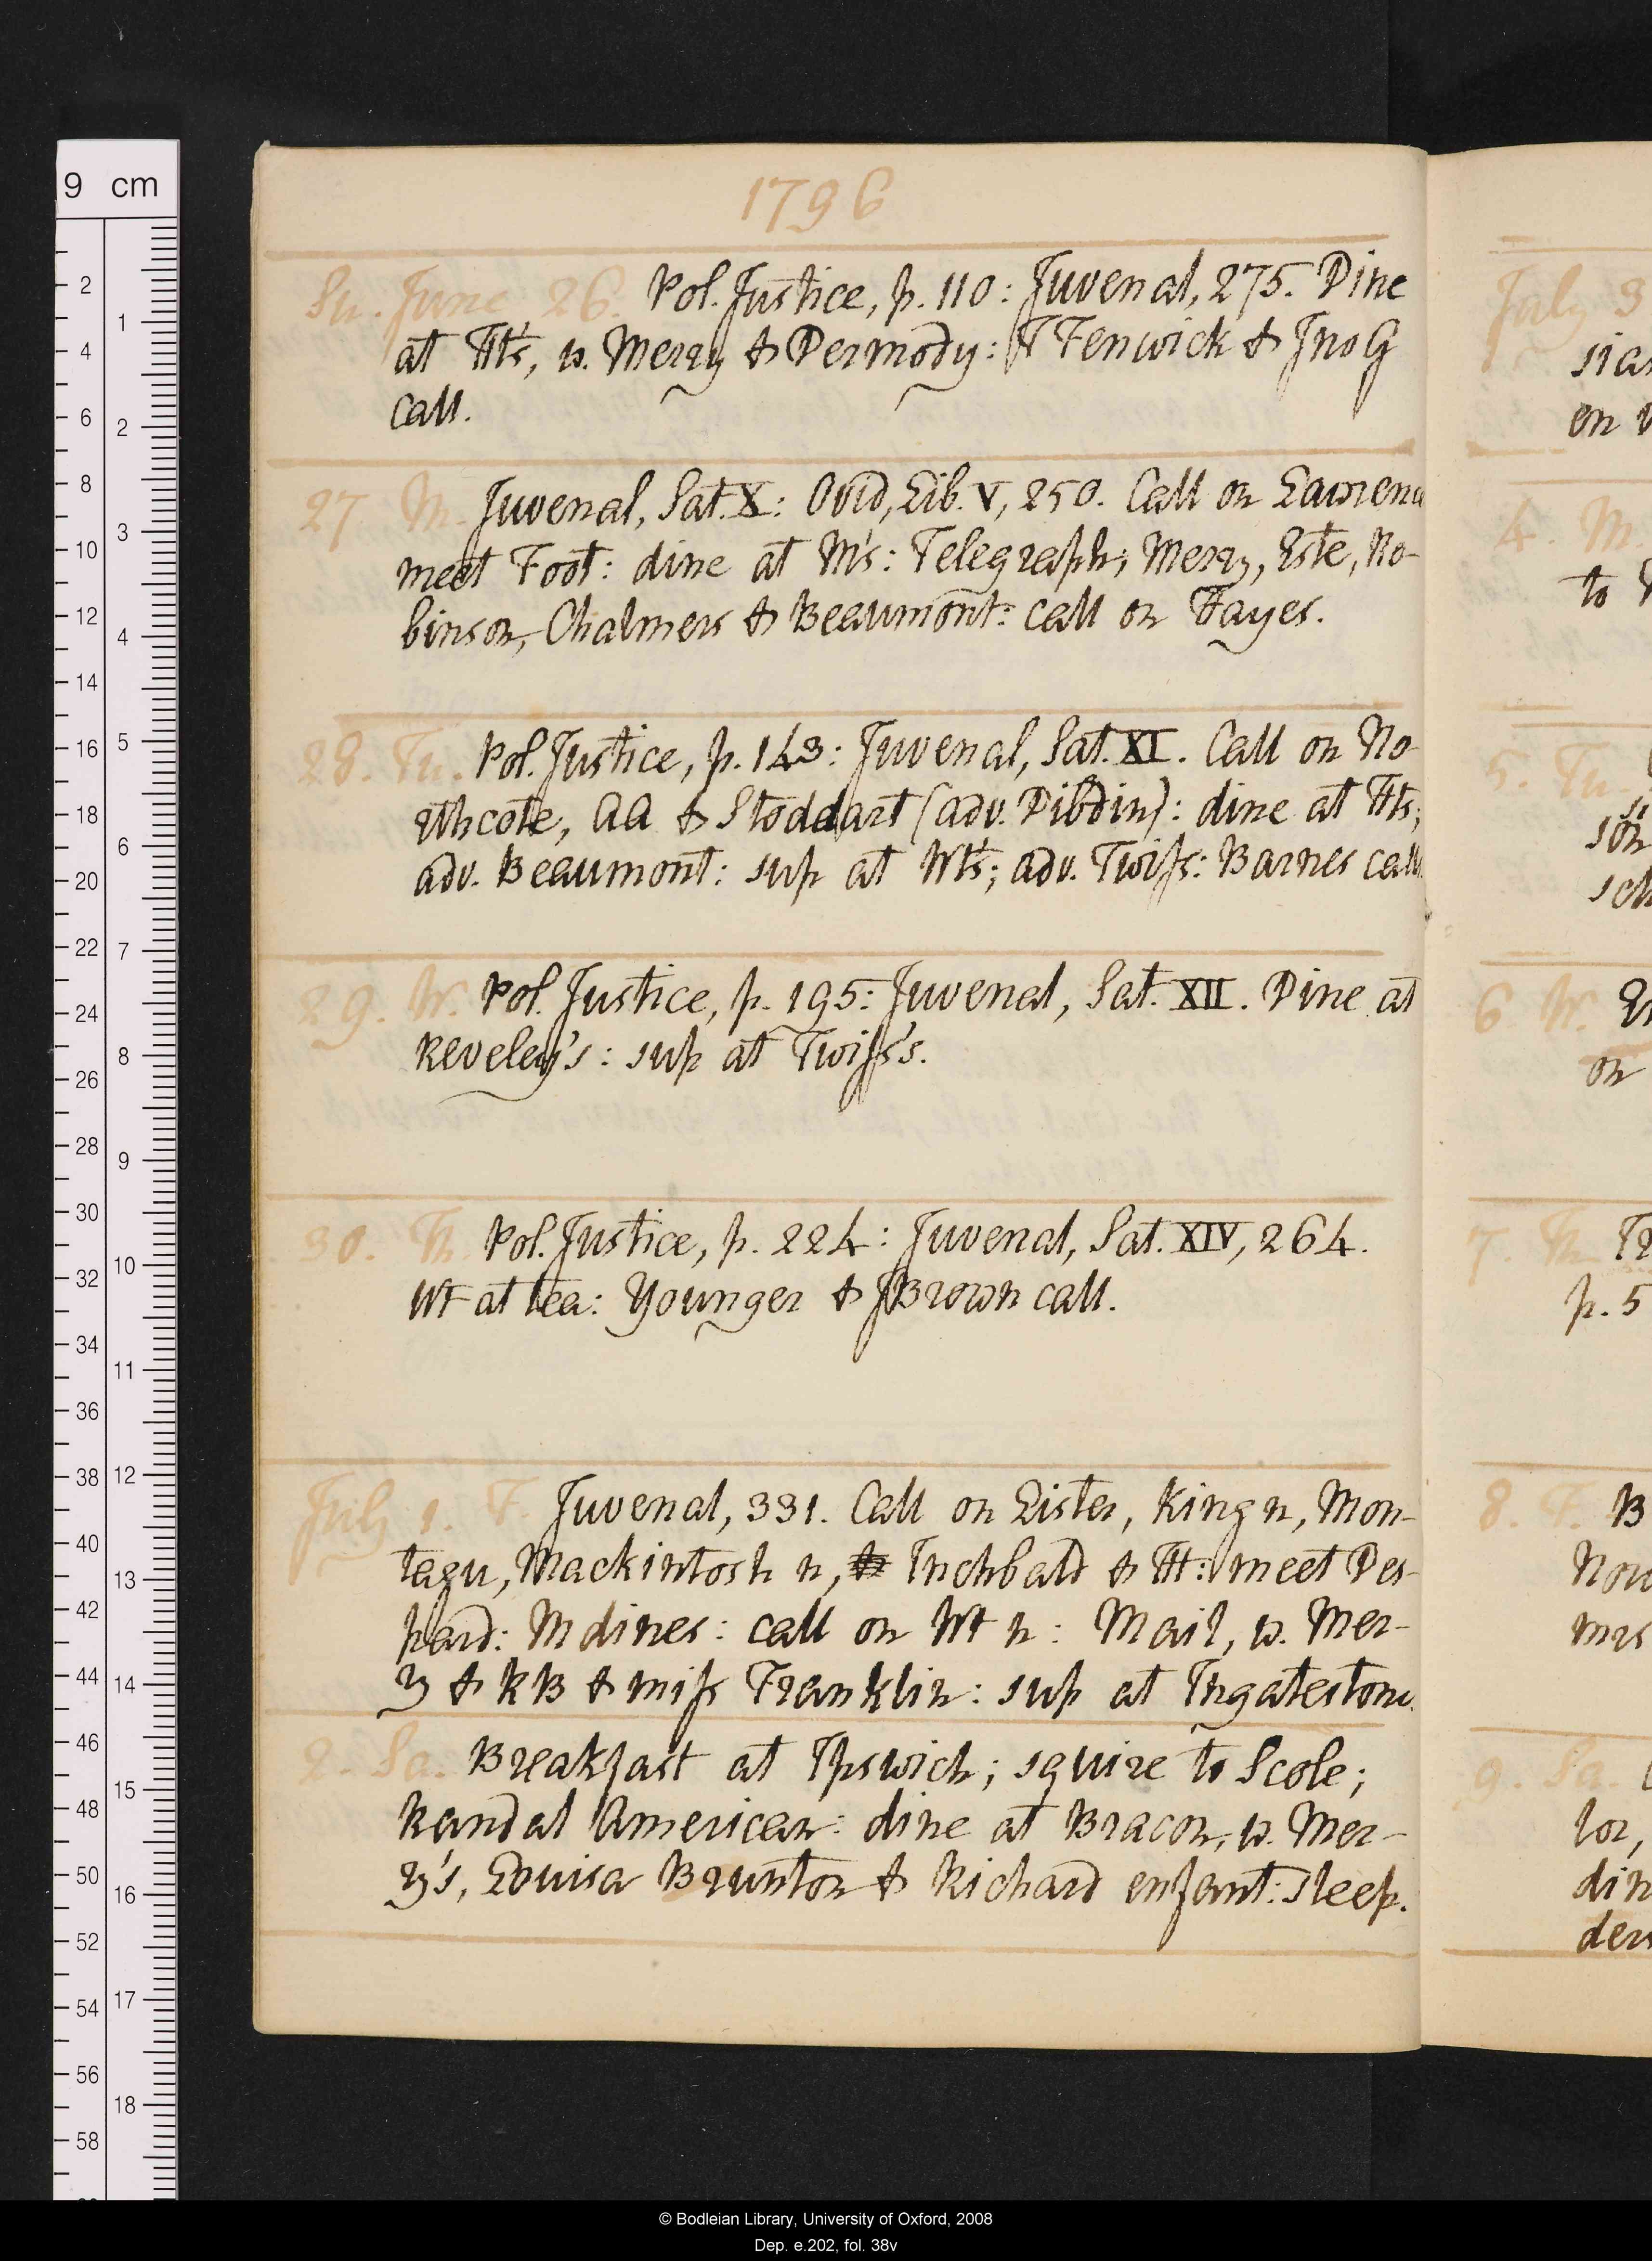 1796
Su. June 26. Pol. Justice, p. 110: Juvenal, 275. Dine
at Ht's, w. Merry & Dermody: H Fenwick & Jno G
call.
27 M. Juvenal, Sat. X: Ovid, Lib. V, 250. Call on Lawrence
meet Foot: dine at M's: Telegraph; Merry, Este, Ro-
binson, Chalmers & Beaumont: call on Hayes.
28. Tu. Pol. Justice, p. 143: Juvenal, Sat. XI. Call on No-
rthcote, AA & Stoddart (adv. Dibdin): dine at Ht's;
adv. Beaumont: sup at Wt's; adv. Twiss: Barnes call
29. W. Pol. Justice, p. 195: Juvenal, Sat. XII. Dine at
Reveley's: sup at Twiss's.
30. Th. Pol. Justice, p. 224: Juvenal, Sat. XIV, 264.
Wt at tea: Younger & J Brown call.
July 1. F. Juvenal, 331. Call on Lister, King n, Mon-
tagu, Mackintosh n, Inchbald & Ht: meet Des-
pard: M dines: call on Wt n: Mail, w. Mer-
ry & RB & miss Franklin: sup at Ingatestone.
2. Sa. Breakfast at Ipswich; squire to Scole;
Randal American: dine at Bracon, w. Mer-
ry's, Louisa Brunton & Richard enfant: sleep.
July 3
sia
en
4. M.
to
5. Tu.
son
sch
6 W.
on
7. Th Tr
p. 5
8. F. B
Nor
mrs
9. Sa.
lor,
din
den
9 cm
2
4
6
8
10
12
14
16
18
20
22
24
26
28
30
32
34
36
38
40
42
44
46
48
50
52
54
56
58
1
2
3
4
5
6
7
8
9
10
11
12
13
14
15
16
17
18
© Bodleian Library, University of Oxford, 2008
Dep. e.202, fol. 38v